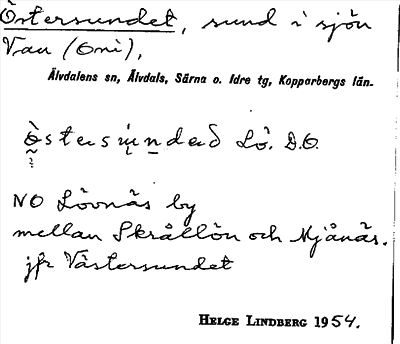 Östersundet, sund i sjön
Van (Oni),
Älvdalens sn, Älvdals, Särna o. Idre tg, Kopparbergs län.
Lö. D.O.
NO Lövnäs by
mellan Skrållön och Mjånäs.
jfr Västersundet
HELGE LINDBERG 1954.